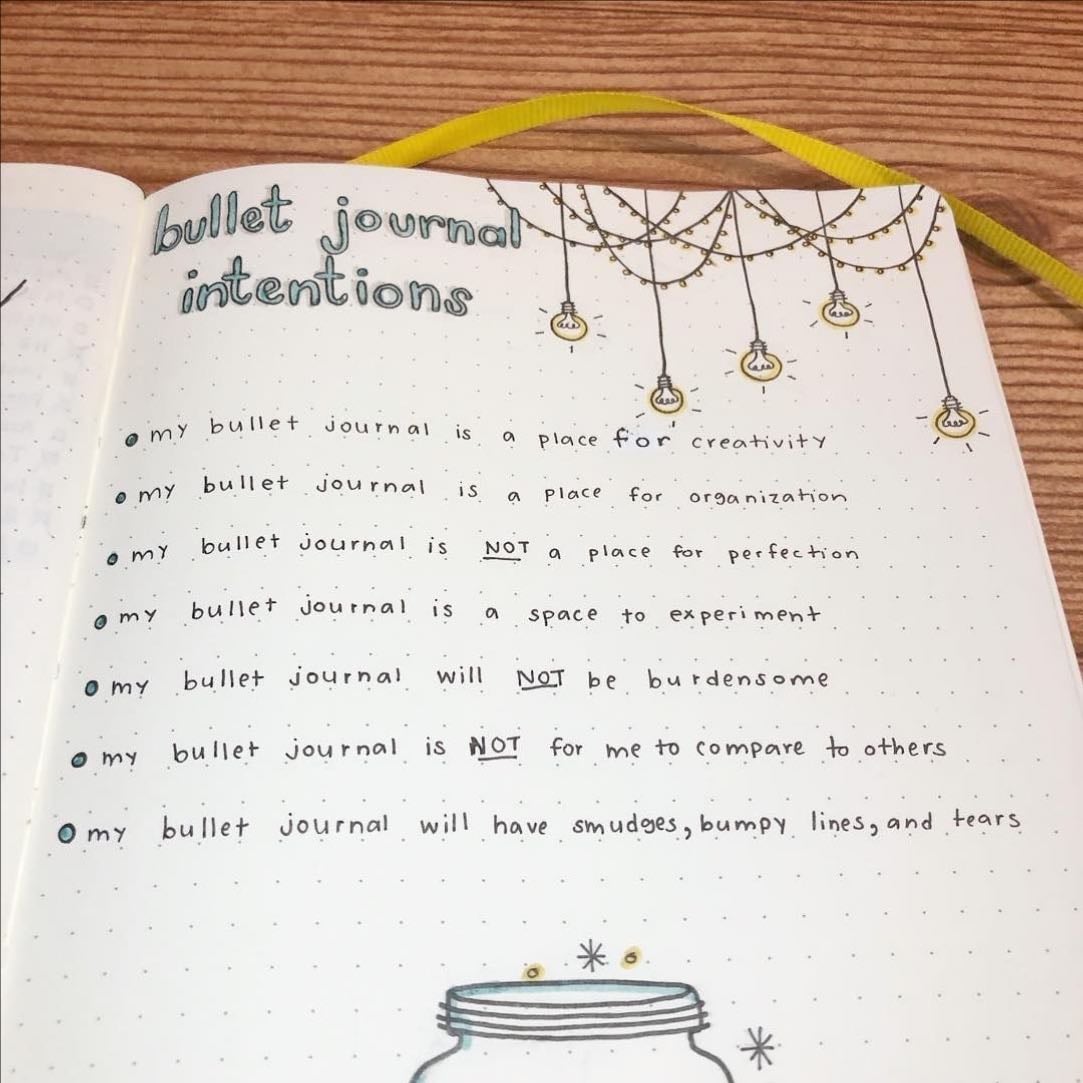 bullet journal
intentions
my bullet journal is a place for creativity
my bullet journal is a place for organization
my bullet journal is NOT a place for perfection
my bullet journal is a space to experiment
my bullet journal will NOT be burdensome
my bullet journal is NOT for me to compare to others
my bullet journal will have smudges, bumpy lines, and tears